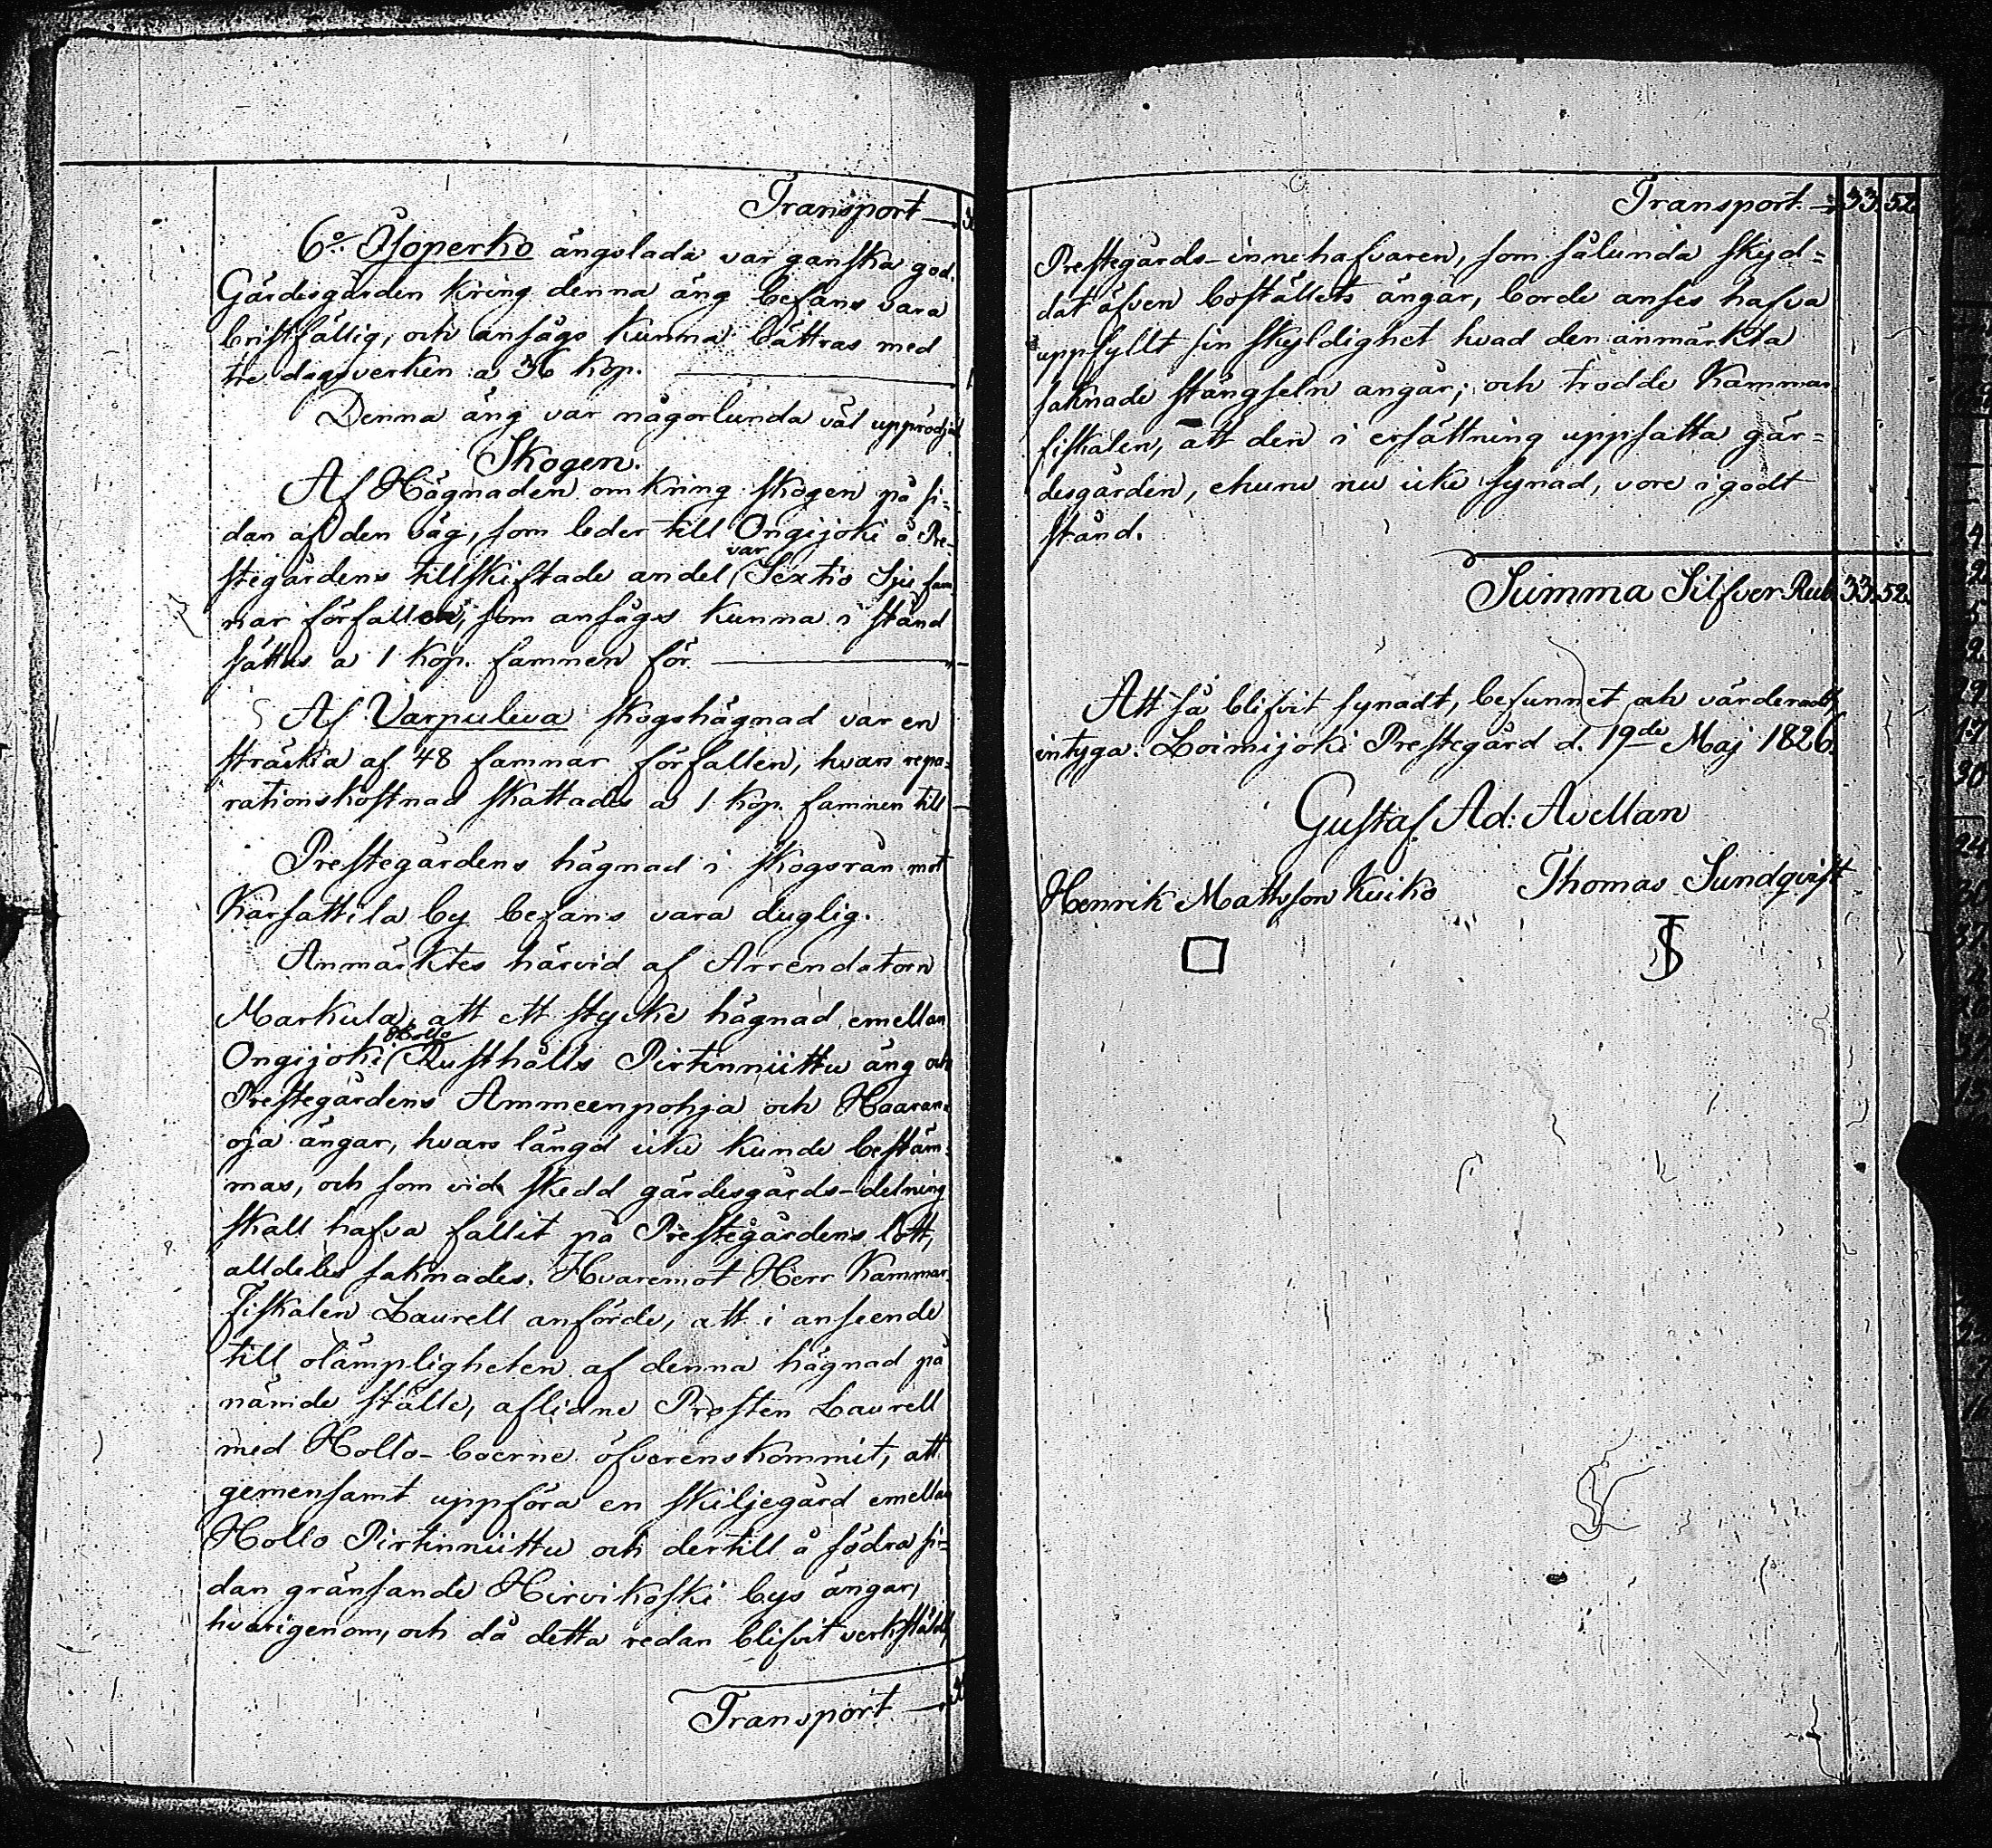 Transport
6o. Isoperko ängslada var ganska god.
Gärdesgården kring denna äng befans vara
bristfällig, och ansågs kunna bättras med
tre dagsverken a 36 kop.
Denna äng var någorlunda väl upprödjd
Skogen.
Af Hägnaden omkring skogen på si-
dan af den väg, som leder till Ongijoki å Pre-
stegårdens tillskiftade andel var Sextio Sju fam-
nar förfallen, som ansågs kunna i stånd
sättas a 1 kop. famnen för
Af Varpuluva skogshägnad var en
sträcka af 48 famnar förfallen, hvars repa-
rationskostnad skattades a 1 kop. famnen till
Prestegårdens hägnad i skogsrån mot
Karsattila by befans vara duglig.
Anmärktes härvid af Arrendatorn
Markula, att ett stycke hägnad emellan
Ongijoki Hollo Rusthålls Pirtinniittu äng och
Prestegårdens Ammeenpohja och Haaran-
oja ängar, hvars längd icke kunde bestäm-
mas, och som vid skedd gärdesgårds-delning
skall hafva fallit på Prestegårdens lott,
alldeles saknades. Hvaremot Herr Kammar-
Fiskalen Laurell anförde, att i anseende
till olämpligheten af denna hägnad på
nämde ställe, aflidne Prosten Laurell
med Hollo-boerne öfverenskommit, att
gemensamt uppföra en skiljegård emellan
Hollo Pirtinniittu och dertill å södra si-
dan gränsande Hirvikoski bys ängar,
hvarigenom, och då detta redan blifvit verkstäldt,
Transport
Transport. 33. 52.
Prestegårds-innehafvaren, som sålunda skyd-
dat äfven boställets ängar, borde anses hafva
uppfyllt sin skyldighet hvad den anmärkta
saknade stängseln angår; och trodde Kammar
fiskalen, att den i ersättning uppsatta gär-
desgården, ehuru nu icke synad, vore i godt
stånd.
Summa Silfver Rub. 33. 52.
Att så blifvit synadt, befunnet och värderadt,
intyga. Loimijoki Prestegård d. 19de Maj 1826.
Gustaf Ad: Avellan
Henrik Mathsson Kuiko Thomas Sundqvist
TS